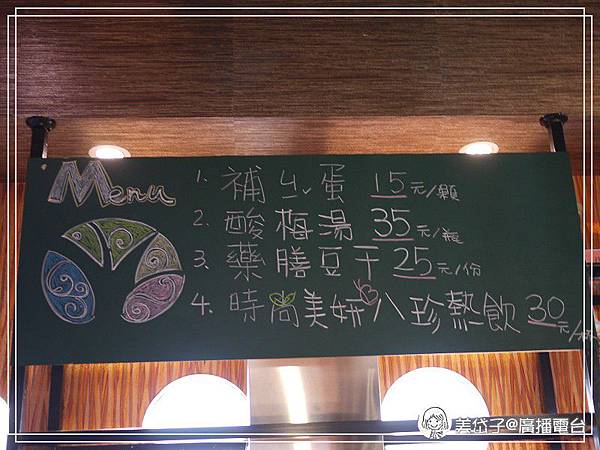 Menu
1. 補ㄓㄨˋ蛋 15元/顆
2. 酸梅湯 35元/瓶
3. 藥膳豆干 25元/份
4. 時尚美妍八珍熱飲 30元/杯
姜岱子@廣播電台